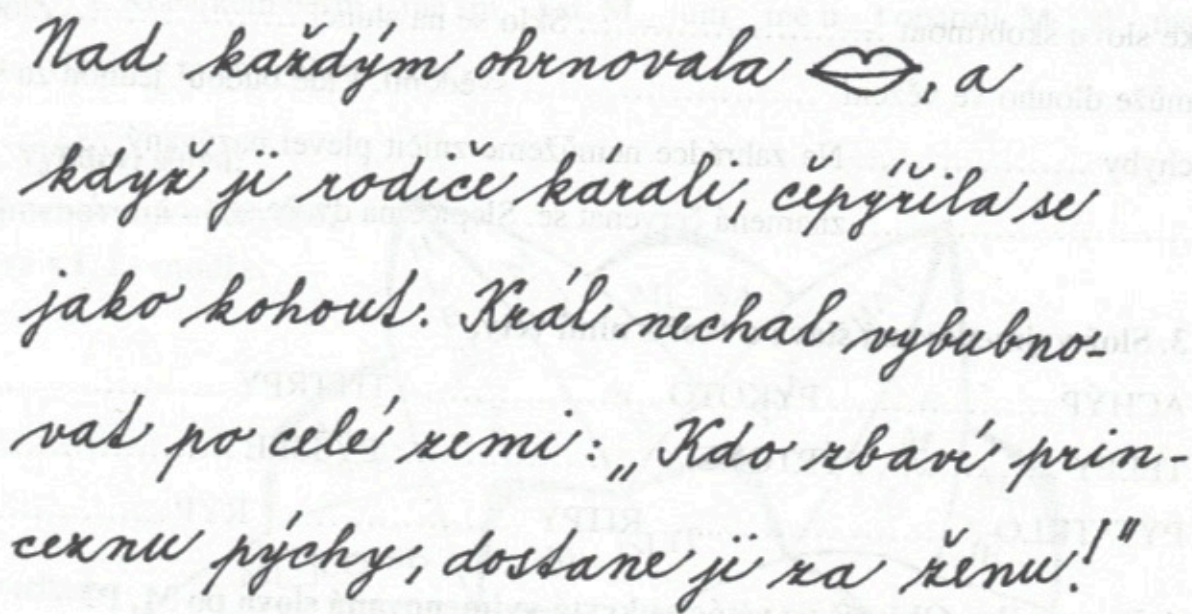 Nad každým ohrnovala 👄, a
když ji rodiče kárali, čepýřila se
jako kohout. Král nechal vybubno-
vat po celé zemi: „Kdo zbaví prin-
ceznu pýchy, dostane ji za ženu!"